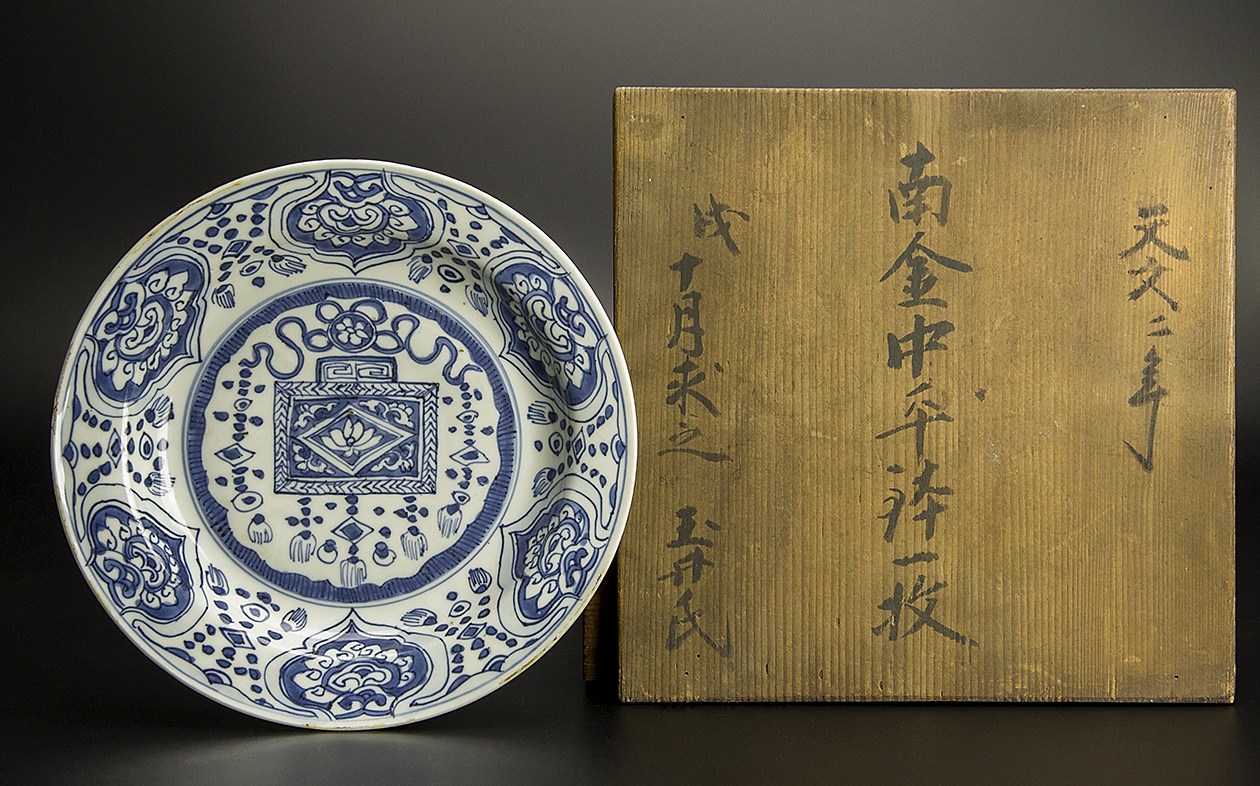 天文二年
南金中平鉢一枚
戌
十月求之 玉井氏